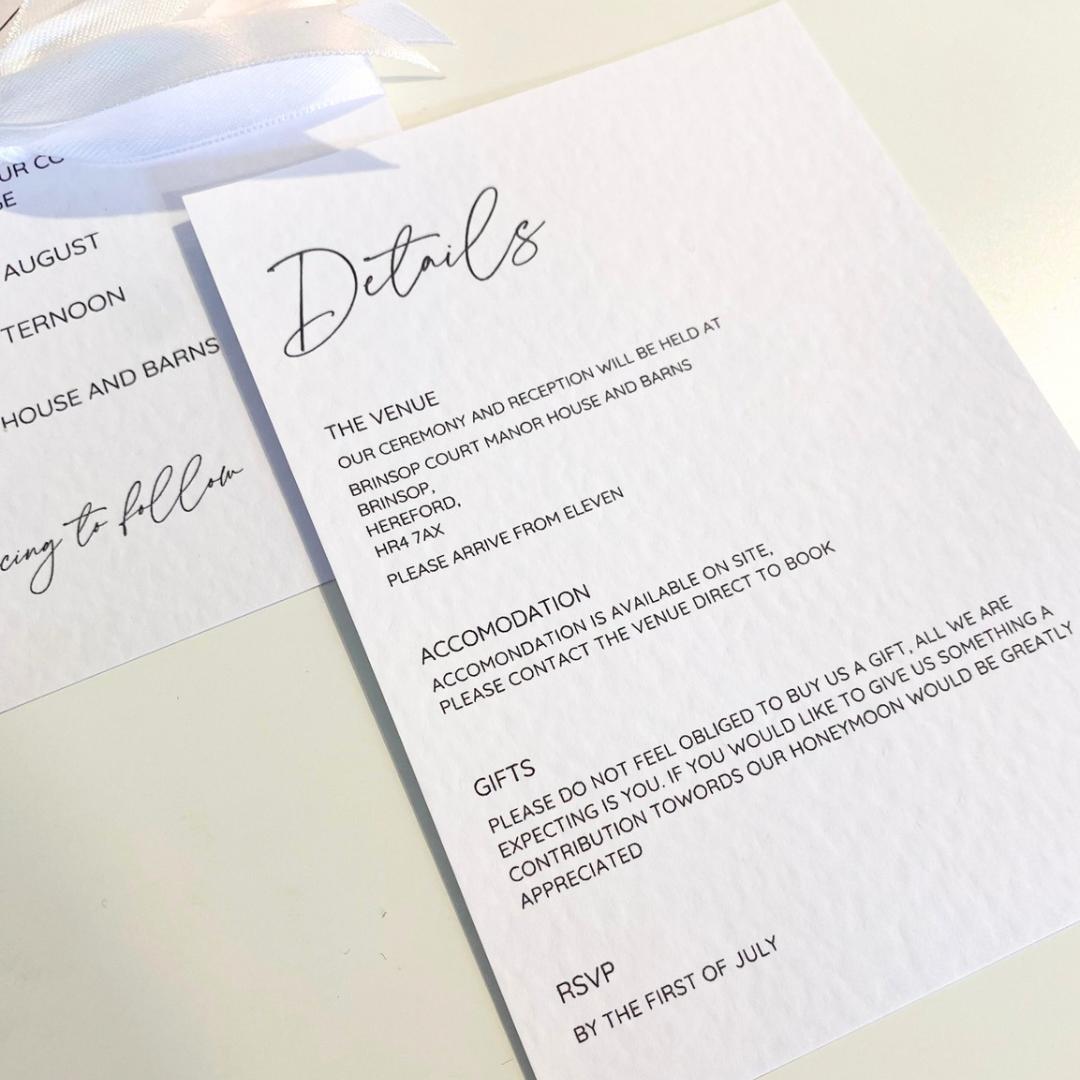 AUGUST
HOUSE AND BARNS
to follow
Details
THE VENUE
OUR CEREMONY AND RECEPTION WILL BE HELD AT
BRINSOP COURT MANOR HOUSE AND BARNS
BRINSOP,
HEREFORD,
HR4 7AX
PLEASE ARRIVE FROM ELEVEN
ACCOMODATION
ACCOMONDATION IS AVAILABLE ON SITE,
PLEASE CONTACT THE VENUE DIRECT TO BOOK
GIFTS
PLEASE DO NOT FEEL OBLIGED TO BUY US A GIFT, ALL WE ARE
EXPECTING IS YOU. IF YOU WOULD LIKE TO GIVE US SOMETHING A
CONTRIBUTION TOWORDS OUR HONEYMOON WOULD BE GREATLY
APPRECIATED
RSVP
BY THE FIRST OF JULY